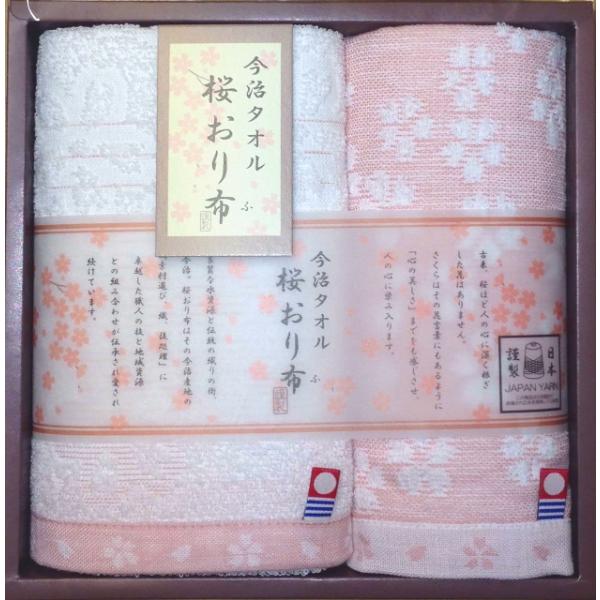 今治タオル
桜おり布
ふ
謹製
今治タオル
桜おり布
ふ
謹製
古来、桜ほど人の心に深く根ざ
した花はありません。
さくらはその花言葉にもあるように
「心の美しさ」までをも感じさせ、
人の心に染み入ります。
な水資源と伝統の織りの街、
今治。桜おり布はその今治産地の
「素材選び、織、後処理」に
卓越した職人の技と地域資源
との組み合わせが伝承され愛され
続けています。
日本
謹製
JAPAN YARN